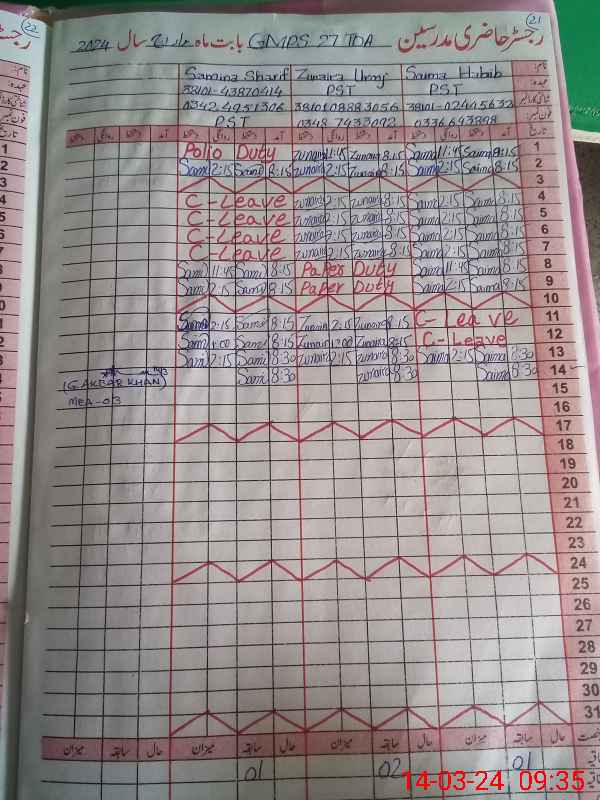 21
رجسٹر حاضری مدرسین GMPS 27 TDA بابت ماہ مارچ سال 2024
22
نام: Samina Sharif Zunaira Saima Habib
عہدہ: PST PST
38101-43870414
38101-02445632
فون نمبر: 0342 4951306 0348 7433092 0336643898
PST
تاریخ آمد دستخط روانگی دستخط
1 Polio Duty Zunaira 11:45 Zunaira 8:15 Saima 11:45 Saima 8:15
2 Sami 2:15 Sami 8:15 Zunaira 2:15 Zunaira 8:15 Saima 2:15 Saima 8:15
3
4 C-Leave Zunaira 2:15 Zunaira 8:15 Saima 2:15 Saima 8:15
5 C-Leave Zunaira 2:15 Zunaira 8:15 Saima 2:15 Saima 8:15
6 C-Leave Zunaira 2:15 Zunaira 8:15 Saima 2:15 Saima 8:15
7 C-Leave Zunaira 2:15 Zunaira 8:15 Saima 2:15 Saima 8:15
8 Sami 11:45 Sami 8:15 Paper Duty Saima 11:45 Saima 8:15
9 Sami 2:15 Sami 8:15 Paper Duty Saima 2:15 Saima 8:15
10
11 Sami 2:15 Sami 8:15 Zunaira 2:15 Zunaira 8:15 C-Leave
12 Sami 1:00 Sami 8:15 Zunaira 1:00 Zunaira 8:15 C-Leave
13 Sami 2:15 Sami 8:30 Zunaira 2:15 Zunaira 8:30 Saima 2:15 Saima 8:30
14 Sami 8:30 Zunaira 8:30 Saima 8:30
(G.AKBAR KHAN)
MEA-03
15
16
17
18
19
20
21
22
23
24
25
26
27
28
29
30
31
حال سابقہ میزان حال سابقہ میزان حال سابقہ میزان حال سابقہ میزان
01 02 01
14-03-24 09:35